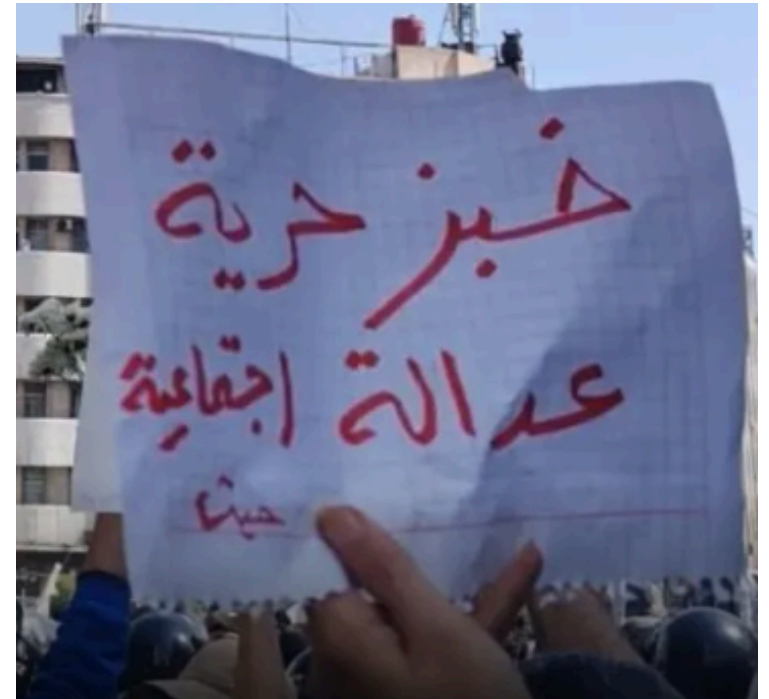 خبز حرية
عدالة اجتماعية